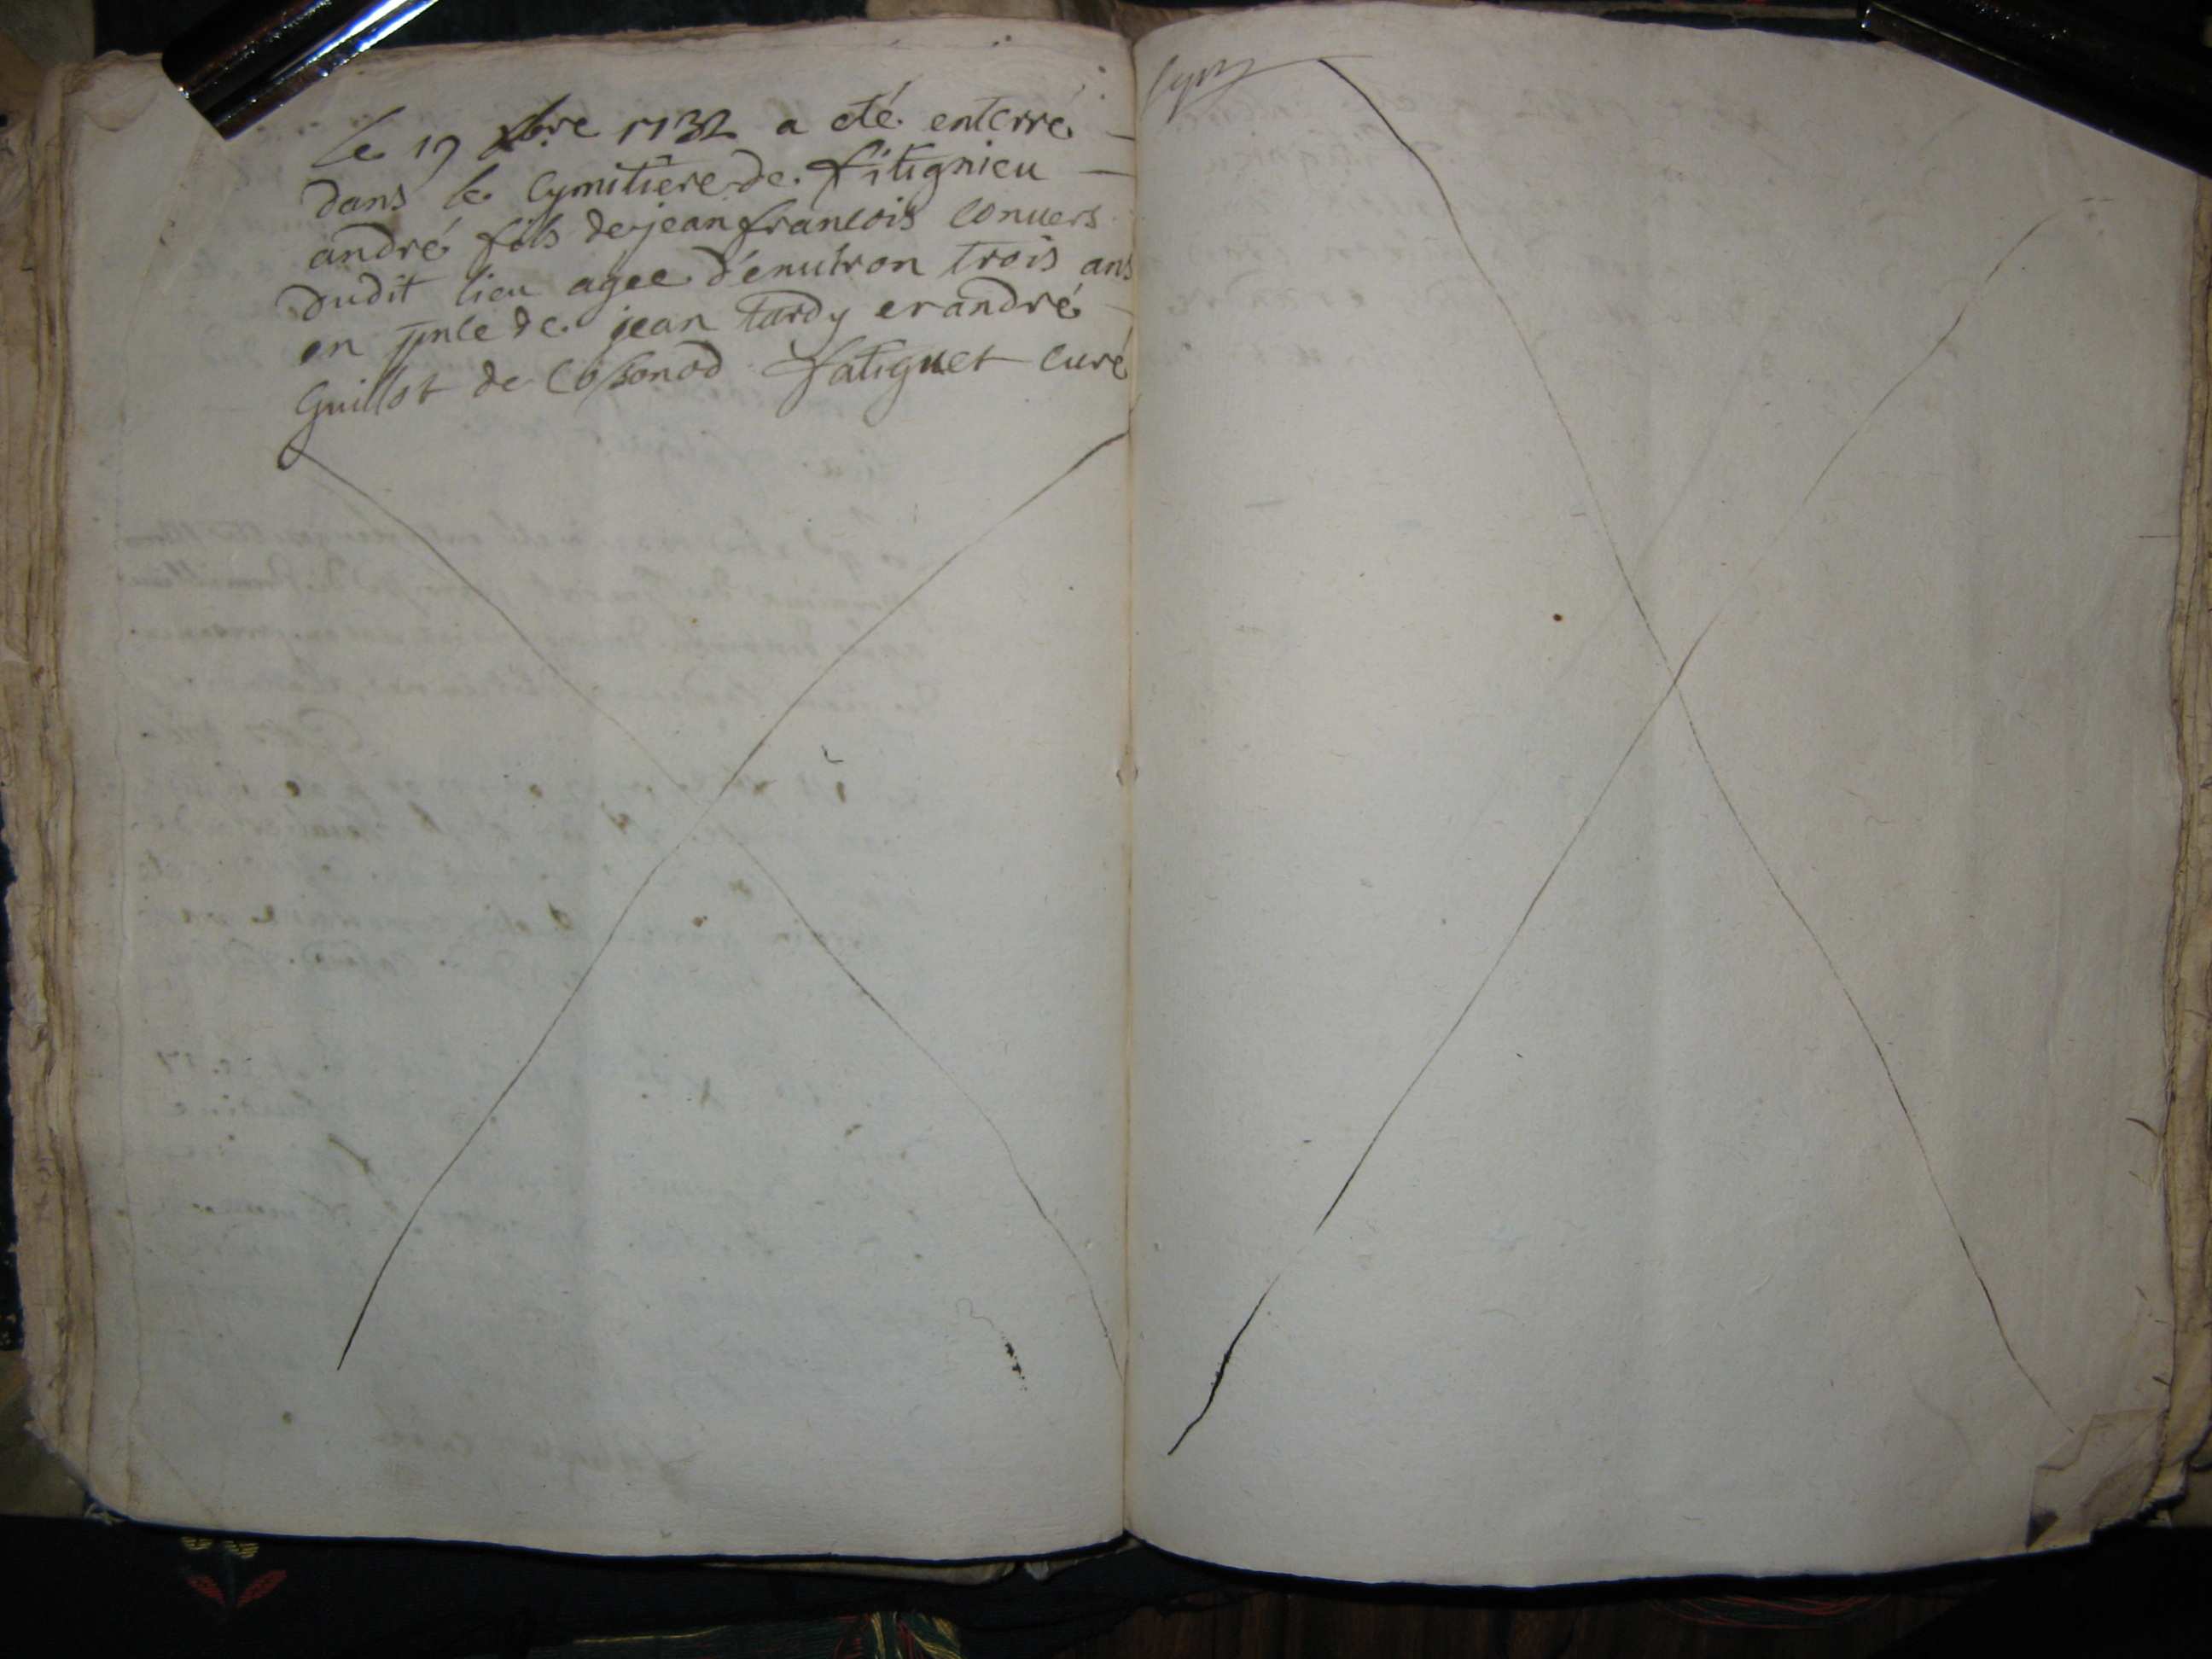 le 19 xbre 1732 a eté enterré
dans le Cymitiere de fitignieu
andré fils de jean francois Conuers
dudit lieu agee d'enuiron trois ans
en pnce de jean tardy et andré
Guillot de Cossonod fatiguet Curé